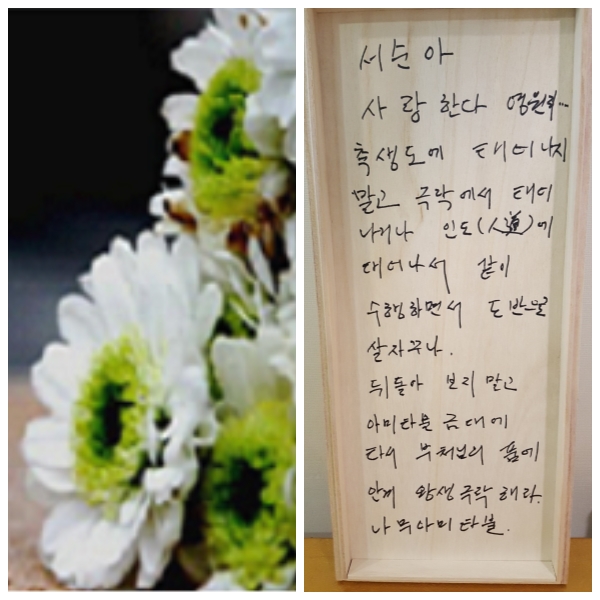 서순아
사랑한다 영원히...
축생도에 태어나지
말고 극락에서 태어
나거나 인도(人道)에
태어나서 같이
수행하면서 도반으로
살자꾸나.
뒤돌아 보지 말고
아미타불 금대에
타서 부처님의 품에
안겨 왕생극락 해라.
나무아미타불.